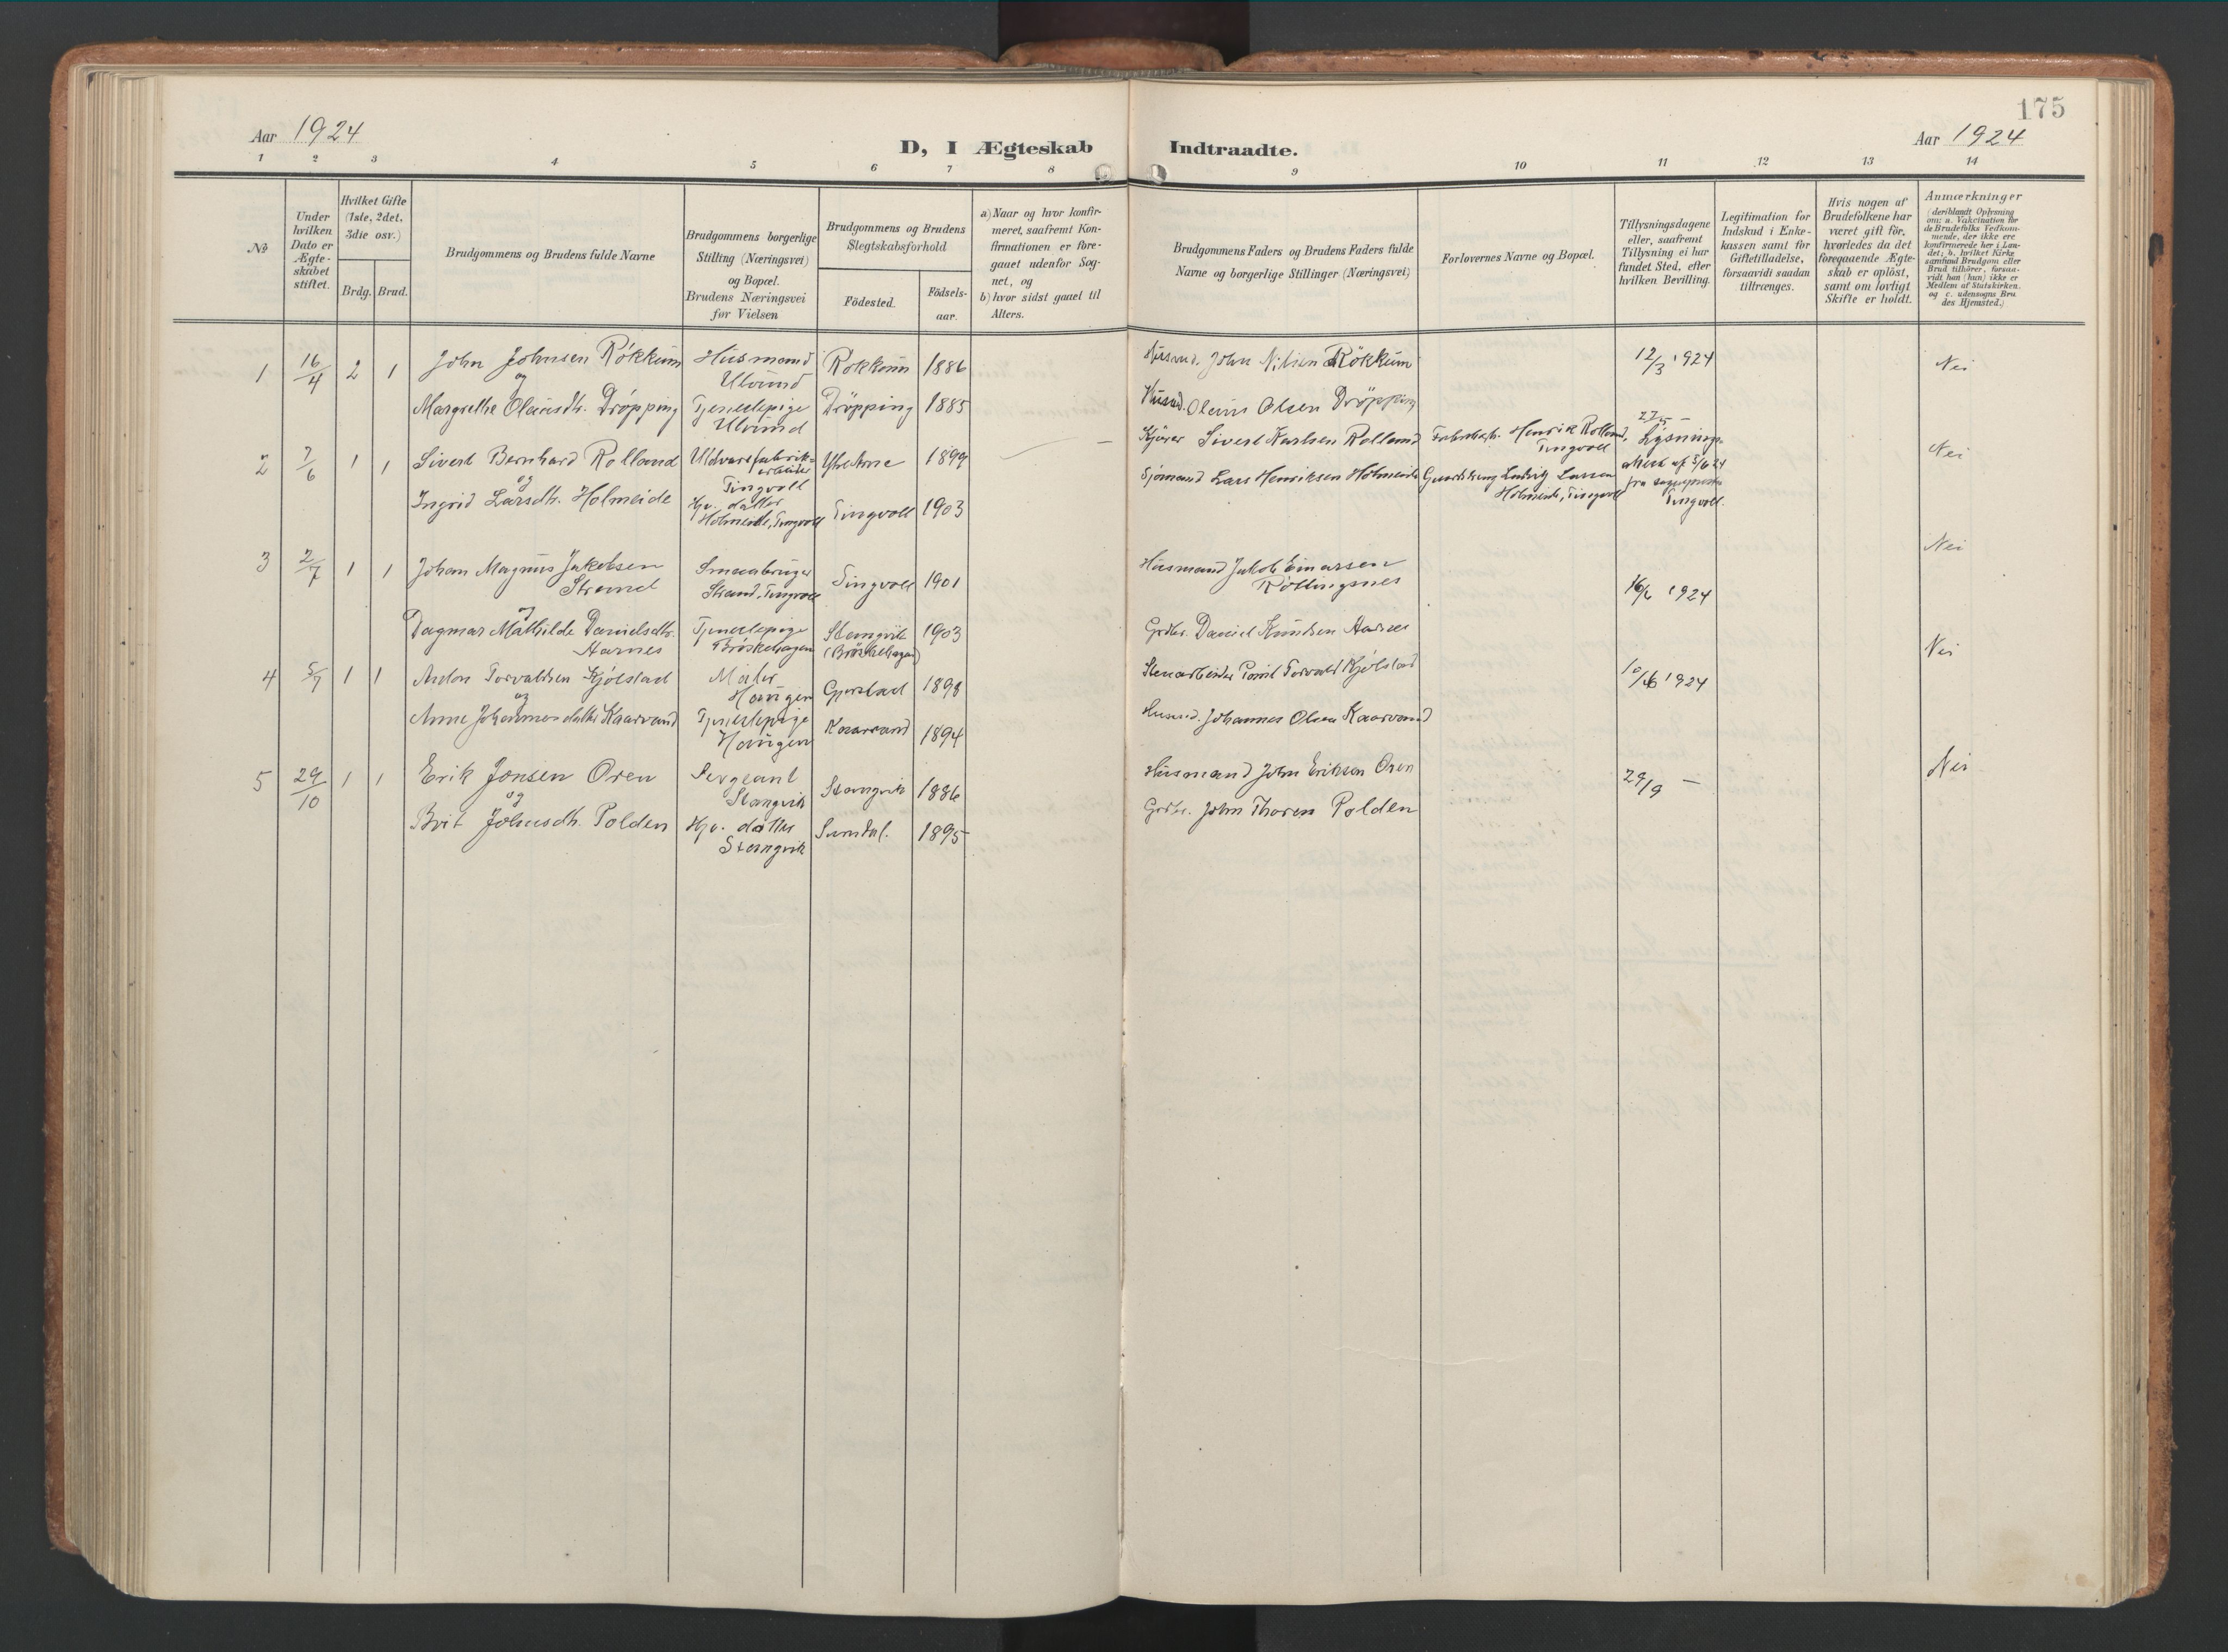 175
Aar 1924
D, I Ægteskab Indtraadte.
Aar 1924
1 2 3 4 5 6 7 8 9 10 11 12 13 14
No
Under hvilken Dato er Ægteskabet stiftet.
Hvilket Gifte (1ste, 2det, 3die osv.)
Brdg. Brud.
Brudgommens og Brudens fulde Navne
Brudgommens borgerlige Stilling (Næringsvei) og Bopæl. Brudens Næringsvei før Vielsen
Brudgommens og Brudens Slegtskabsforhold
Födested.
Födselsaar.
a) Naar og hvor konfirmeret, saafremt Konfirmationen er foregaaet udenfor Sognet, og
b) hvor sidst gaaet til Alters.
Brudgommens Faders og Brudens Faders fulde Navne og borgerlige Stillinger (Næringsvei)
Forlovernes Navne og Bopæl.
Tillysningsdagene eller, saafremt Tillysning ei har fundet Sted, efter hvilken Bevilling.
Legitimation for Indskud i Enkekassen samt for Giftetilladelse, forsaavidt saadan tiltrænges.
Hvis nogen af Brudefolkene har været gift för, hvorledes da det foregaaende Ægteskab er oplöst, samt om lovligt Skifte er holdt.
Anmærkninger
(deriblandt Oplysning om: a. Vakcination for de Brudefolks Vedkommende, der ikke ere konfirmerede her i Landet; b. hvilket Kirkesamfund Brudgom eller Brud tilhörer, forsaavidt han (hun) ikke er Medlem af Statskirken. og c. udensogns Brudes Hjemsted.)
1 16/4 2 1 John Johnsen Rökkum Husmand Ulvund Rökkum 1886 Husmd. John Nilsen Rökkum 12/3 1924 Nei
og
Margrethe Olausdtr. Dröpping Tjenestepige Ulvund Dröpping 1885 Husmd. Olaus Olsen Dröpping
2 7/6 1 1 Sivert Bernhard Rolland Uldvarefabrikarbeider Tingvoll 1899 Kjörer Sivert Karlsen Rolland Henrik Rolland, Tingvoll Lysningsattest af 5/6 24 fra sogneprest Tingvoll. Nei
og
Ingrid Larsdtr. Holmeide Hjv. datter Holmeide, Tingvoll Tingvoll 1903 Sjömand Lars Henriksen Holmeide Gaardbrug Ludvig Larsen Holmeide, Tingvoll
3 2/7 1 1 Johan Magnus Jakobsen Strand Smaabruger Strand, Tingvoll Tingvoll 1901 Husmand Jakob Einarsen Röttingsnes 16/6 1924 Nei
og
Dagmar Mathilde Danielsdtr. Aarnes Tjenestepige Bröskehagen Stangvik (Bröskehagen) 1903 Grdbr. Daniel Knudsen Aarnes
4 5/7 1 1 Anton Torvaldsen Kjölstad Maler Haugen Gjerstad 1898 Stenarbeider Paul Torvald Kjölstad 10/6 1924 Nei
og
Anne Johannesdatter Kaarvand Tjenestepige Haugen Kaarvand 1894 Husmd. Johannes Olsen Kaarvand
5 29/10 1 1 Erik Jonsen Oren Sergeant Stangvik Stangvik 1886 Husmand John Eriksen Oren 29/9 – Nei
og
Brit Johnsdtr. Polden Hjv. datter Stangvik Sundal. 1895 Grdbr. John Thoresen Polden